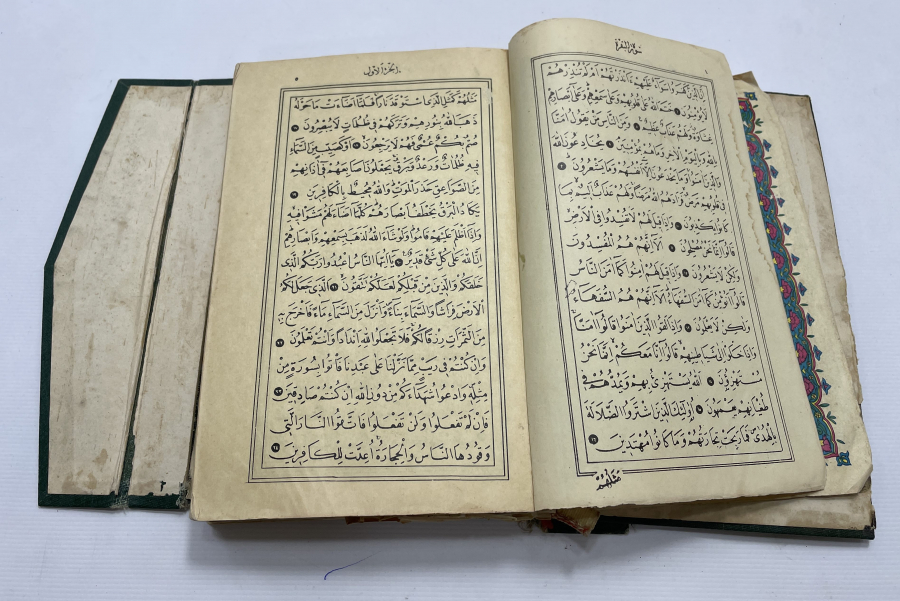 سورة البقرة
٤
اِنَّ الَّذِينَ كَفَرُوا سَوَاءٌ عَلَيْهِمْ ءَاَنْذَرْتَهُمْ اَمْ لَمْ تُنْذِرْهُمْ
لَا يُؤْمِنُونَ ٦ خَتَمَ اللهُ عَلَى قُلُوبِهِمْ وَعَلَى سَمْعِهِمْ وَعَلَى اَبْصَارِهِمْ
غِشَاوَةٌ وَلَهُمْ عَذَابٌ عَظِيمٌ ٧ وَمِنَ النَّاسِ مَنْ يَقُولُ اٰمَنَّا
بِاللهِ وَبِالْيَوْمِ الْاٰخِرِ وَمَا هُمْ بِمُؤْمِنِينَ ٨ يُخَادِعُونَ اللهَ
وَالَّذِينَ اٰمَنُوا وَمَا يَخْدَعُونَ اِلَّا اَنْفُسَهُمْ وَمَا يَشْعُرُونَ ٩
فِي قُلُوبِهِمْ مَرَضٌ فَزَادَهُمُ اللهُ مَرَضًا وَلَهُمْ عَذَابٌ اَلِيمٌ بِمَا
كَانُوا يَكْذِبُونَ ١٠ وَاِذَا قِيلَ لَهُمْ لَا تُفْسِدُوا فِي الْاَرْضِ
قَالُوا اِنَّمَا نَحْنُ مُصْلِحُونَ ١١ اَلَا اِنَّهُمْ هُمُ الْمُفْسِدُونَ
وَلٰكِنْ لَا يَشْعُرُونَ ١٢ وَاِذَا قِيلَ لَهُمْ اٰمِنُوا كَمَا اٰمَنَ النَّاسُ
قَالُوا اَنُؤْمِنُ كَمَا اٰمَنَ السُّفَهَاءُ اَلَا اِنَّهُمْ هُمُ السُّفَهَاءُ
وَلٰكِنْ لَا يَعْلَمُونَ ١٣ وَاِذَا لَقُوا الَّذِينَ اٰمَنُوا قَالُوا اٰمَنَّا
وَاِذَا خَلَوْا اِلَى شَيَاطِينِهِمْ قَالُوا اِنَّا مَعَكُمْ اِنَّمَا نَحْنُ
مُسْتَهْزِؤُنَ ١٤ اَللهُ يَسْتَهْزِئُ بِهِمْ وَيَمُدُّهُمْ فِي
طُغْيَانِهِمْ يَعْمَهُونَ ١٥ اُولٰئِكَ الَّذِينَ اشْتَرَوُا الضَّلَالَةَ
بِالْهُدٰى فَمَا رَبِحَتْ تِجَارَتُهُمْ وَمَا كَانُوا مُهْتَدِينَ ١٦
مَثَلُهُمْ
الجزء الاول
٥
مَثَلُهُمْ كَمَثَلِ الَّذِي اسْتَوْقَدَ نَارًا فَلَمَّا اَضَاءَتْ مَا حَوْلَهُ
ذَهَبَ اللهُ بِنُورِهِمْ وَتَرَكَهُمْ فِي ظُلُمَاتٍ لَا يُبْصِرُونَ ١٧
صُمٌّ بُكْمٌ عُمْيٌ فَهُمْ لَا يَرْجِعُونَ ١٨ اَوْ كَصَيِّبٍ مِنَ السَّمَاءِ
فِيهِ ظُلُمَاتٌ وَرَعْدٌ وَبَرْقٌ يَجْعَلُونَ اَصَابِعَهُمْ فِي اٰذَانِهِمْ
مِنَ الصَّوَاعِقِ حَذَرَ الْمَوْتِ وَاللهُ مُحِيطٌ بِالْكَافِرِينَ ١٩
يَكَادُ الْبَرْقُ يَخْطَفُ اَبْصَارَهُمْ كُلَّمَا اَضَاءَ لَهُمْ مَشَوْا فِيهِ
وَاِذَا اَظْلَمَ عَلَيْهِمْ قَامُوا وَلَوْ شَاءَ اللهُ لَذَهَبَ بِسَمْعِهِمْ وَاَبْصَارِهِمْ
اِنَّ اللهَ عَلَى كُلِّ شَيْءٍ قَدِيرٌ ٢٠ يَا اَيُّهَا النَّاسُ اعْبُدُوا رَبَّكُمُ الَّذِي
خَلَقَكُمْ وَالَّذِينَ مِنْ قَبْلِكُمْ لَعَلَّكُمْ تَتَّقُونَ ٢١ اَلَّذِي جَعَلَ لَكُمُ
الْاَرْضَ فِرَاشًا وَالسَّمَاءَ بِنَاءً وَاَنْزَلَ مِنَ السَّمَاءِ مَاءً فَاَخْرَجَ بِهِ
مِنَ الثَّمَرَاتِ رِزْقًا لَكُمْ فَلَا تَجْعَلُوا لِلهِ اَنْدَادًا وَاَنْتُمْ تَعْلَمُونَ ٢٢
وَاِنْ كُنْتُمْ فِي رَيْبٍ مِمَّا نَزَّلْنَا عَلَى عَبْدِنَا فَأْتُوا بِسُورَةٍ مِنْ
مِثْلِهِ وَادْعُوا شُهَدَاءَكُمْ مِنْ دُونِ اللهِ اِنْ كُنْتُمْ صَادِقِينَ ٢٣
فَاِنْ لَمْ تَفْعَلُوا وَلَنْ تَفْعَلُوا فَاتَّقُوا النَّارَ الَّتِي
وَقُودُهَا النَّاسُ وَالْحِجَارَةُ اُعِدَّتْ لِلْكَافِرِينَ ٢٤